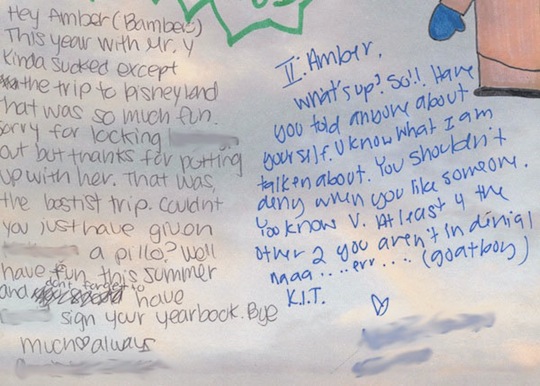 Hey Amber (Bamber)
This year with Mr. Y
Kinda sucked except
the trip to Disneyland
that was so much fun.
sorry for locking
out but thanks for putting
up with her. That was,
the bastist trip. Couldnt
you just have givon
a pillo? Well
have fun this summer
and dont forget to have
sign your yearbook. Bye
much♡always
II. Amber,
what's up? So!! Have
you told anyone about
yourself. U know what I am
talken about. You shouldn't
deny when you like someone.
You know V. At least 4 the
other 2 you aren't in dinial
naaa....err.... (goatboy)
K.I.T. ♡